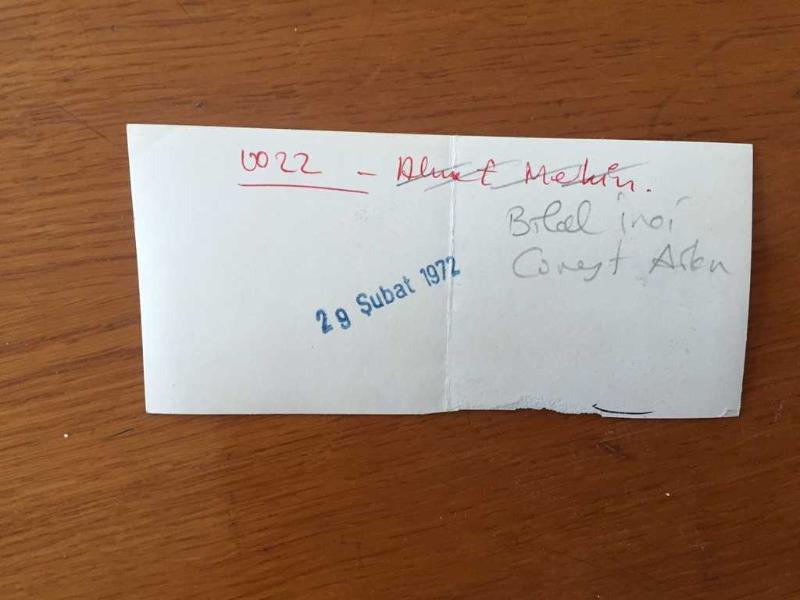 0022 - Ahmet Mekin.
Bilal inci
Cüneyt Arkın
29 Şubat 1972